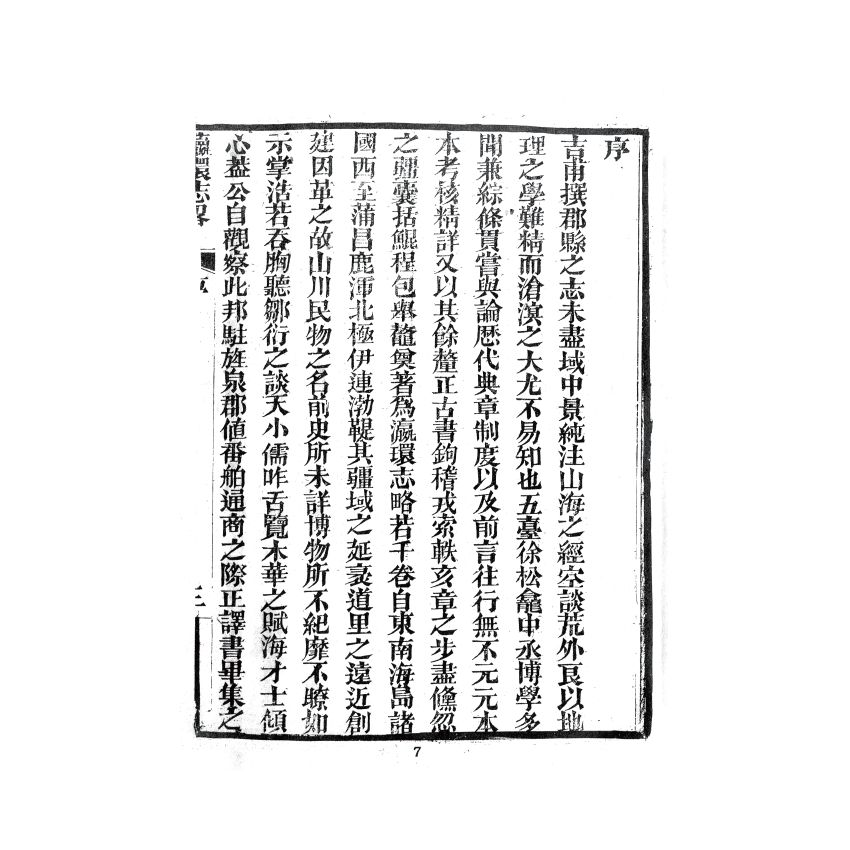 序
吉甫撰郡縣之志未盡域中景純注山海之經空談荒外良以地
理之學難精而滄溟之大尤不易知也五臺徐松龕中丞博學多
聞兼綜條貫嘗與論歴代典章制度以及前言往行無不元元本
本考核精詳又以其餘釐正古書鉤稽戎索軼亥章之步盡儵忽
之疆囊括鯤程包舉鼇奠著爲瀛環志略若干卷自東南海島諸
國西至蒲昌鹿渾北極伊連渤鞮其疆域之延袤道里之遠近創
建因革之故山川民物之名前史所未詳博物所不紀靡不瞭如
示掌浩若吞胸聽鄒衍之談天小儒咋舌覽木華之賦海才士傾
心葢公自觀察此邦駐旌泉郡値番舶通商之際正譯書畢集之
瀛環志畧
序
三
7